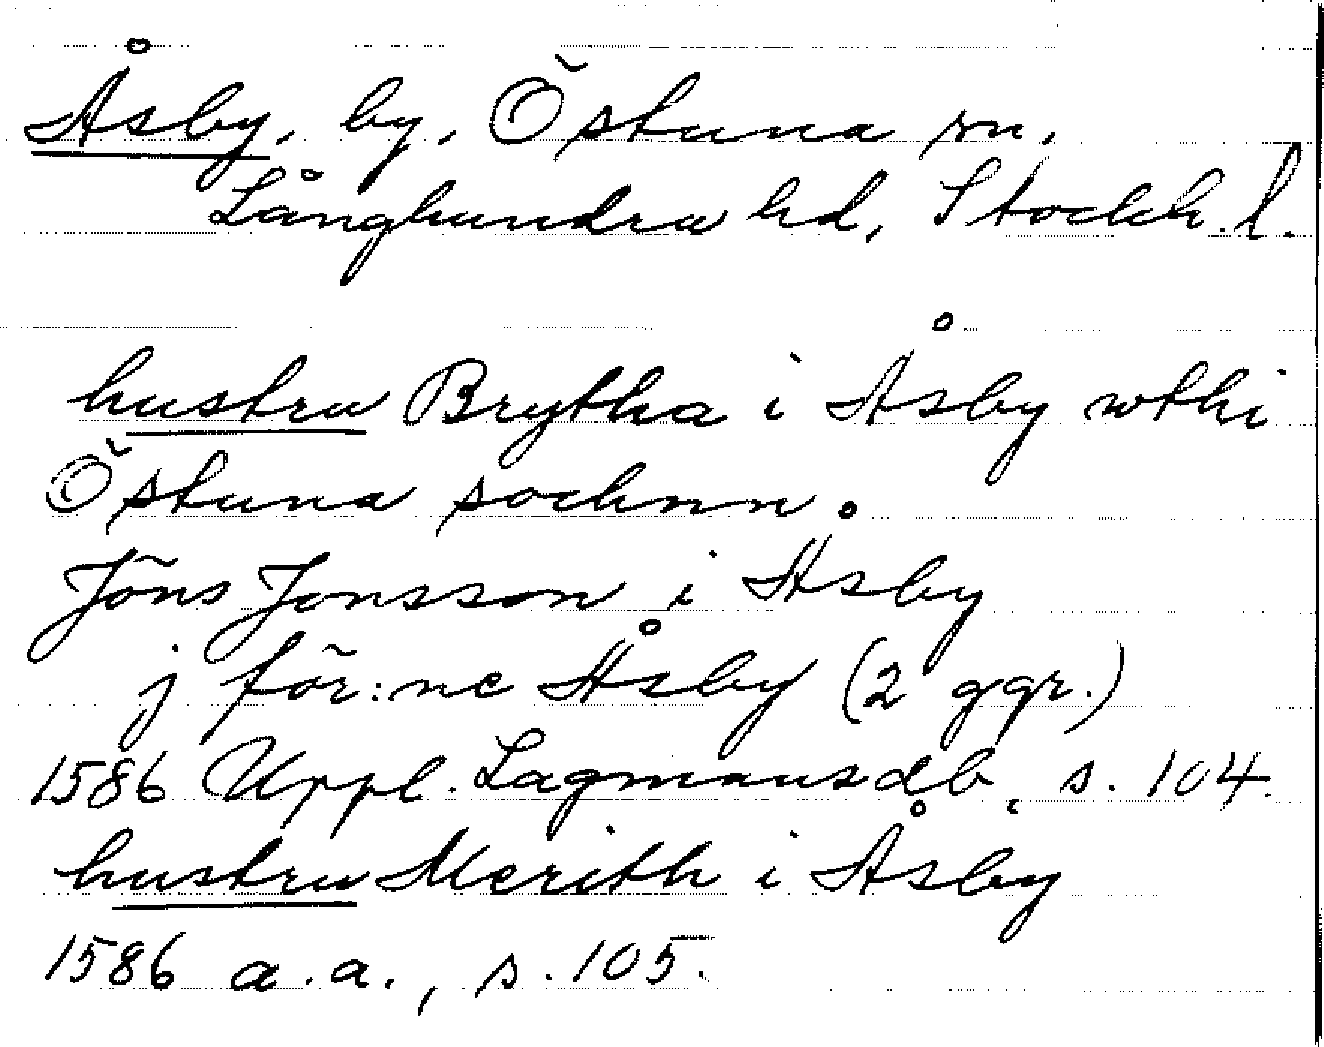 Åsby, by, Östuna sn,
Långhundra hd, Stockh. l.
hustru Brytha i Åsby wthi
Östuna sochnn.
Jöns Jonsson i Åsby
j för:ne Åsby (2 ggr.)
1586 Uppl. Lagmansdb, s. 104.
hustru Merith i Åsby
1586 a.a., s. 105.